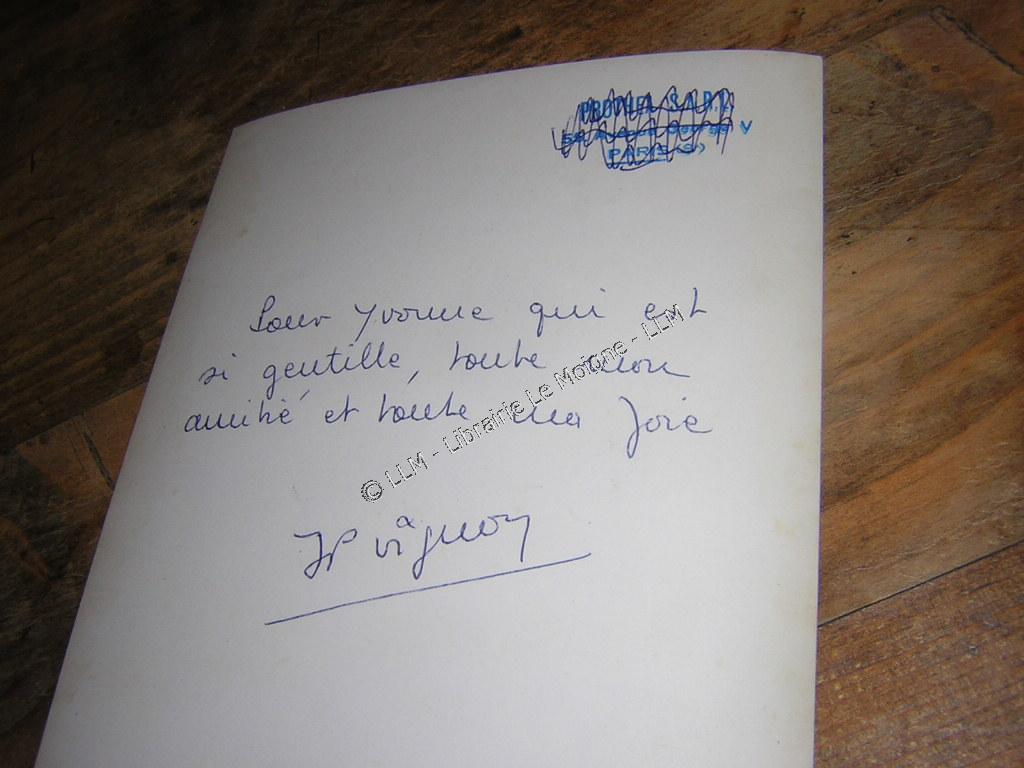 S.A.R.L.
V
PARIS
Pour Yvonne qui est
si gentille, toute mon
amitié et toute ma Joie
© LLM - Librairie Le Moigne - LLM
JP Vignon